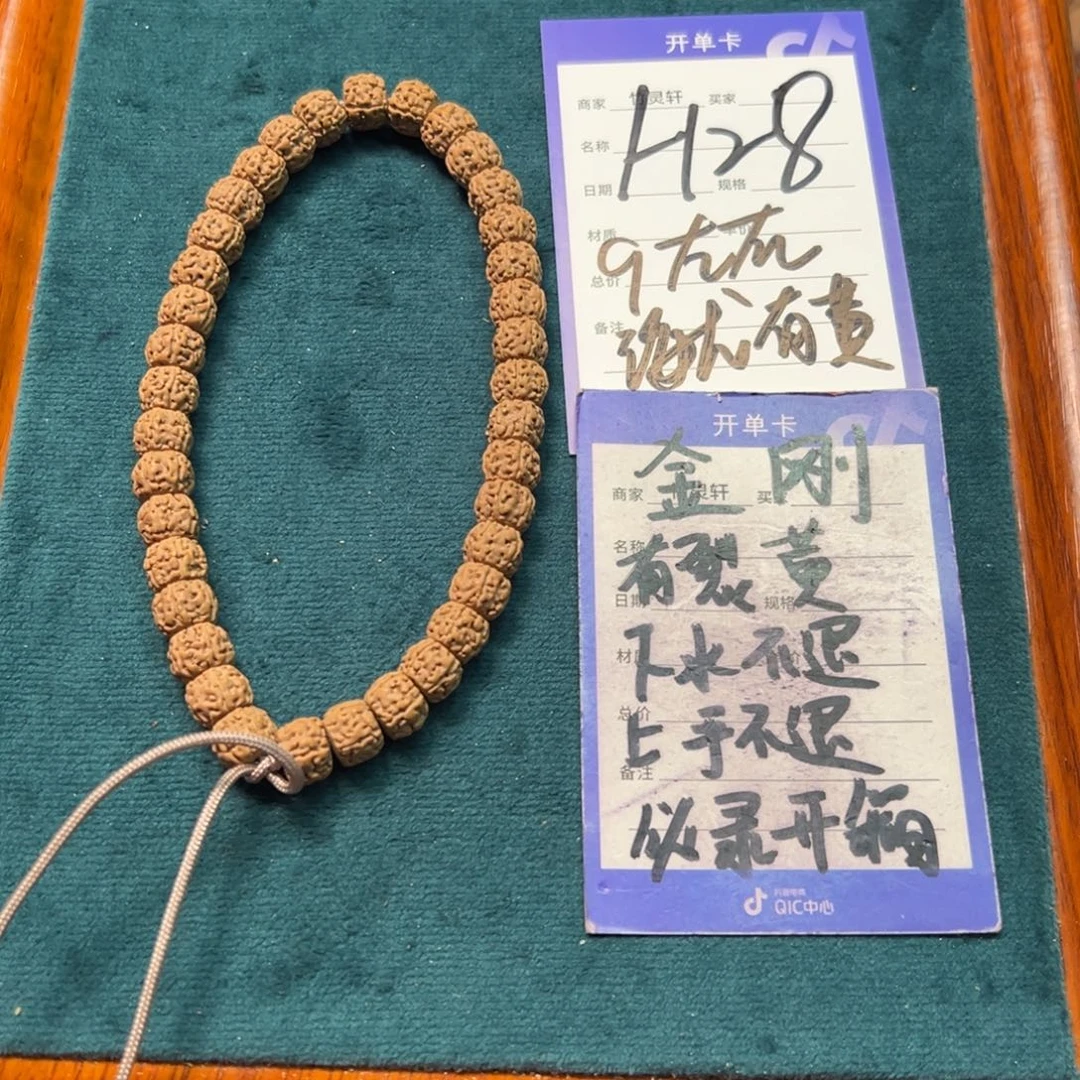 开单卡
商家 竹灵轩 买家
H28
名称
日期 规格
材质
9
总价
备注
有黄
开单卡
金刚
商家 竹灵轩 买家
名称
有裂黄
日期 规格
材质
下水不退
总价
上手不退
备注
必录开箱
抖音电商
QIC中心